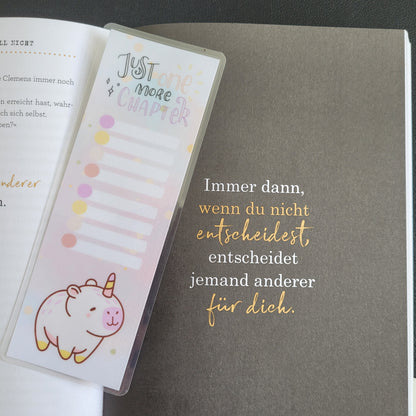 LL NICHT
e Clemens immer noch
en erreicht hast, wahr-
ch sich selbst.
ben?«
anderer
JUST ONE
MORE
CHAPTER
Immer dann,
wenn du nicht
entscheidest,
entscheidet
jemand anderer
für dich.